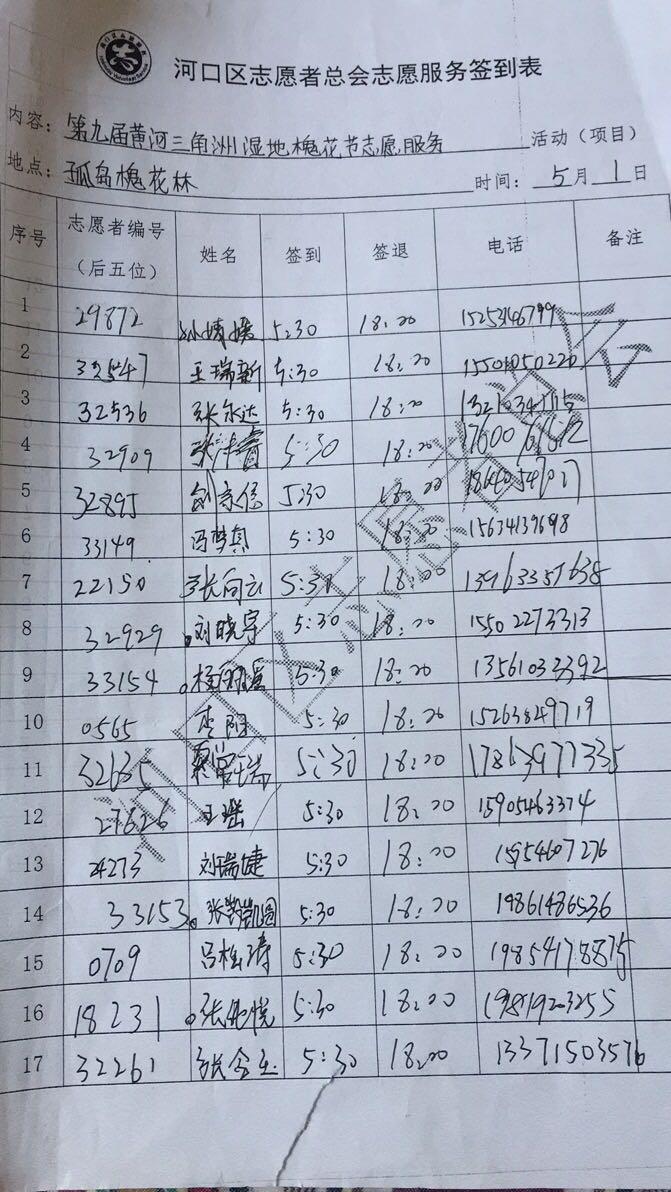 河口区志愿者总会志愿服务签到表
内容：第九届黄河三角洲湿地槐花节志愿服务 活动（项目）
地点：孤岛槐花林 时间：5月1日
序号 志愿者编号（后五位） 姓名 签到 签退 电话 备注
1 29872 5:30 18:20 15253146799
2 32547 王瑞新 5:30 18:20
3 32536 张永达 5:30 18:20
4 32909 5:30 18:20
5 32895 5:30 18:20
6 33149 冯梦真 5:30 18:20 15634139698
7 22150 张向云 5:30 18:20 13963357638
8 32929 刘晓宇 5:30 18:20 15502273313
9 33154 5:30 18:20 13561032392
10 0565 李阳 5:30 18:20 15263849719
11 32635 5:30 18:20 17863977335
12 27626 王瑶 5:30 18:20 15905463374
13 24273 刘瑞婕 5:30 18:20 15954607276
14 33153 5:30 18:20 19861486536
15 0709 吕松涛 5:30 18:20 19854178875
16 18231 5:30 18:20
17 32261 5:30 18:20 13371503576